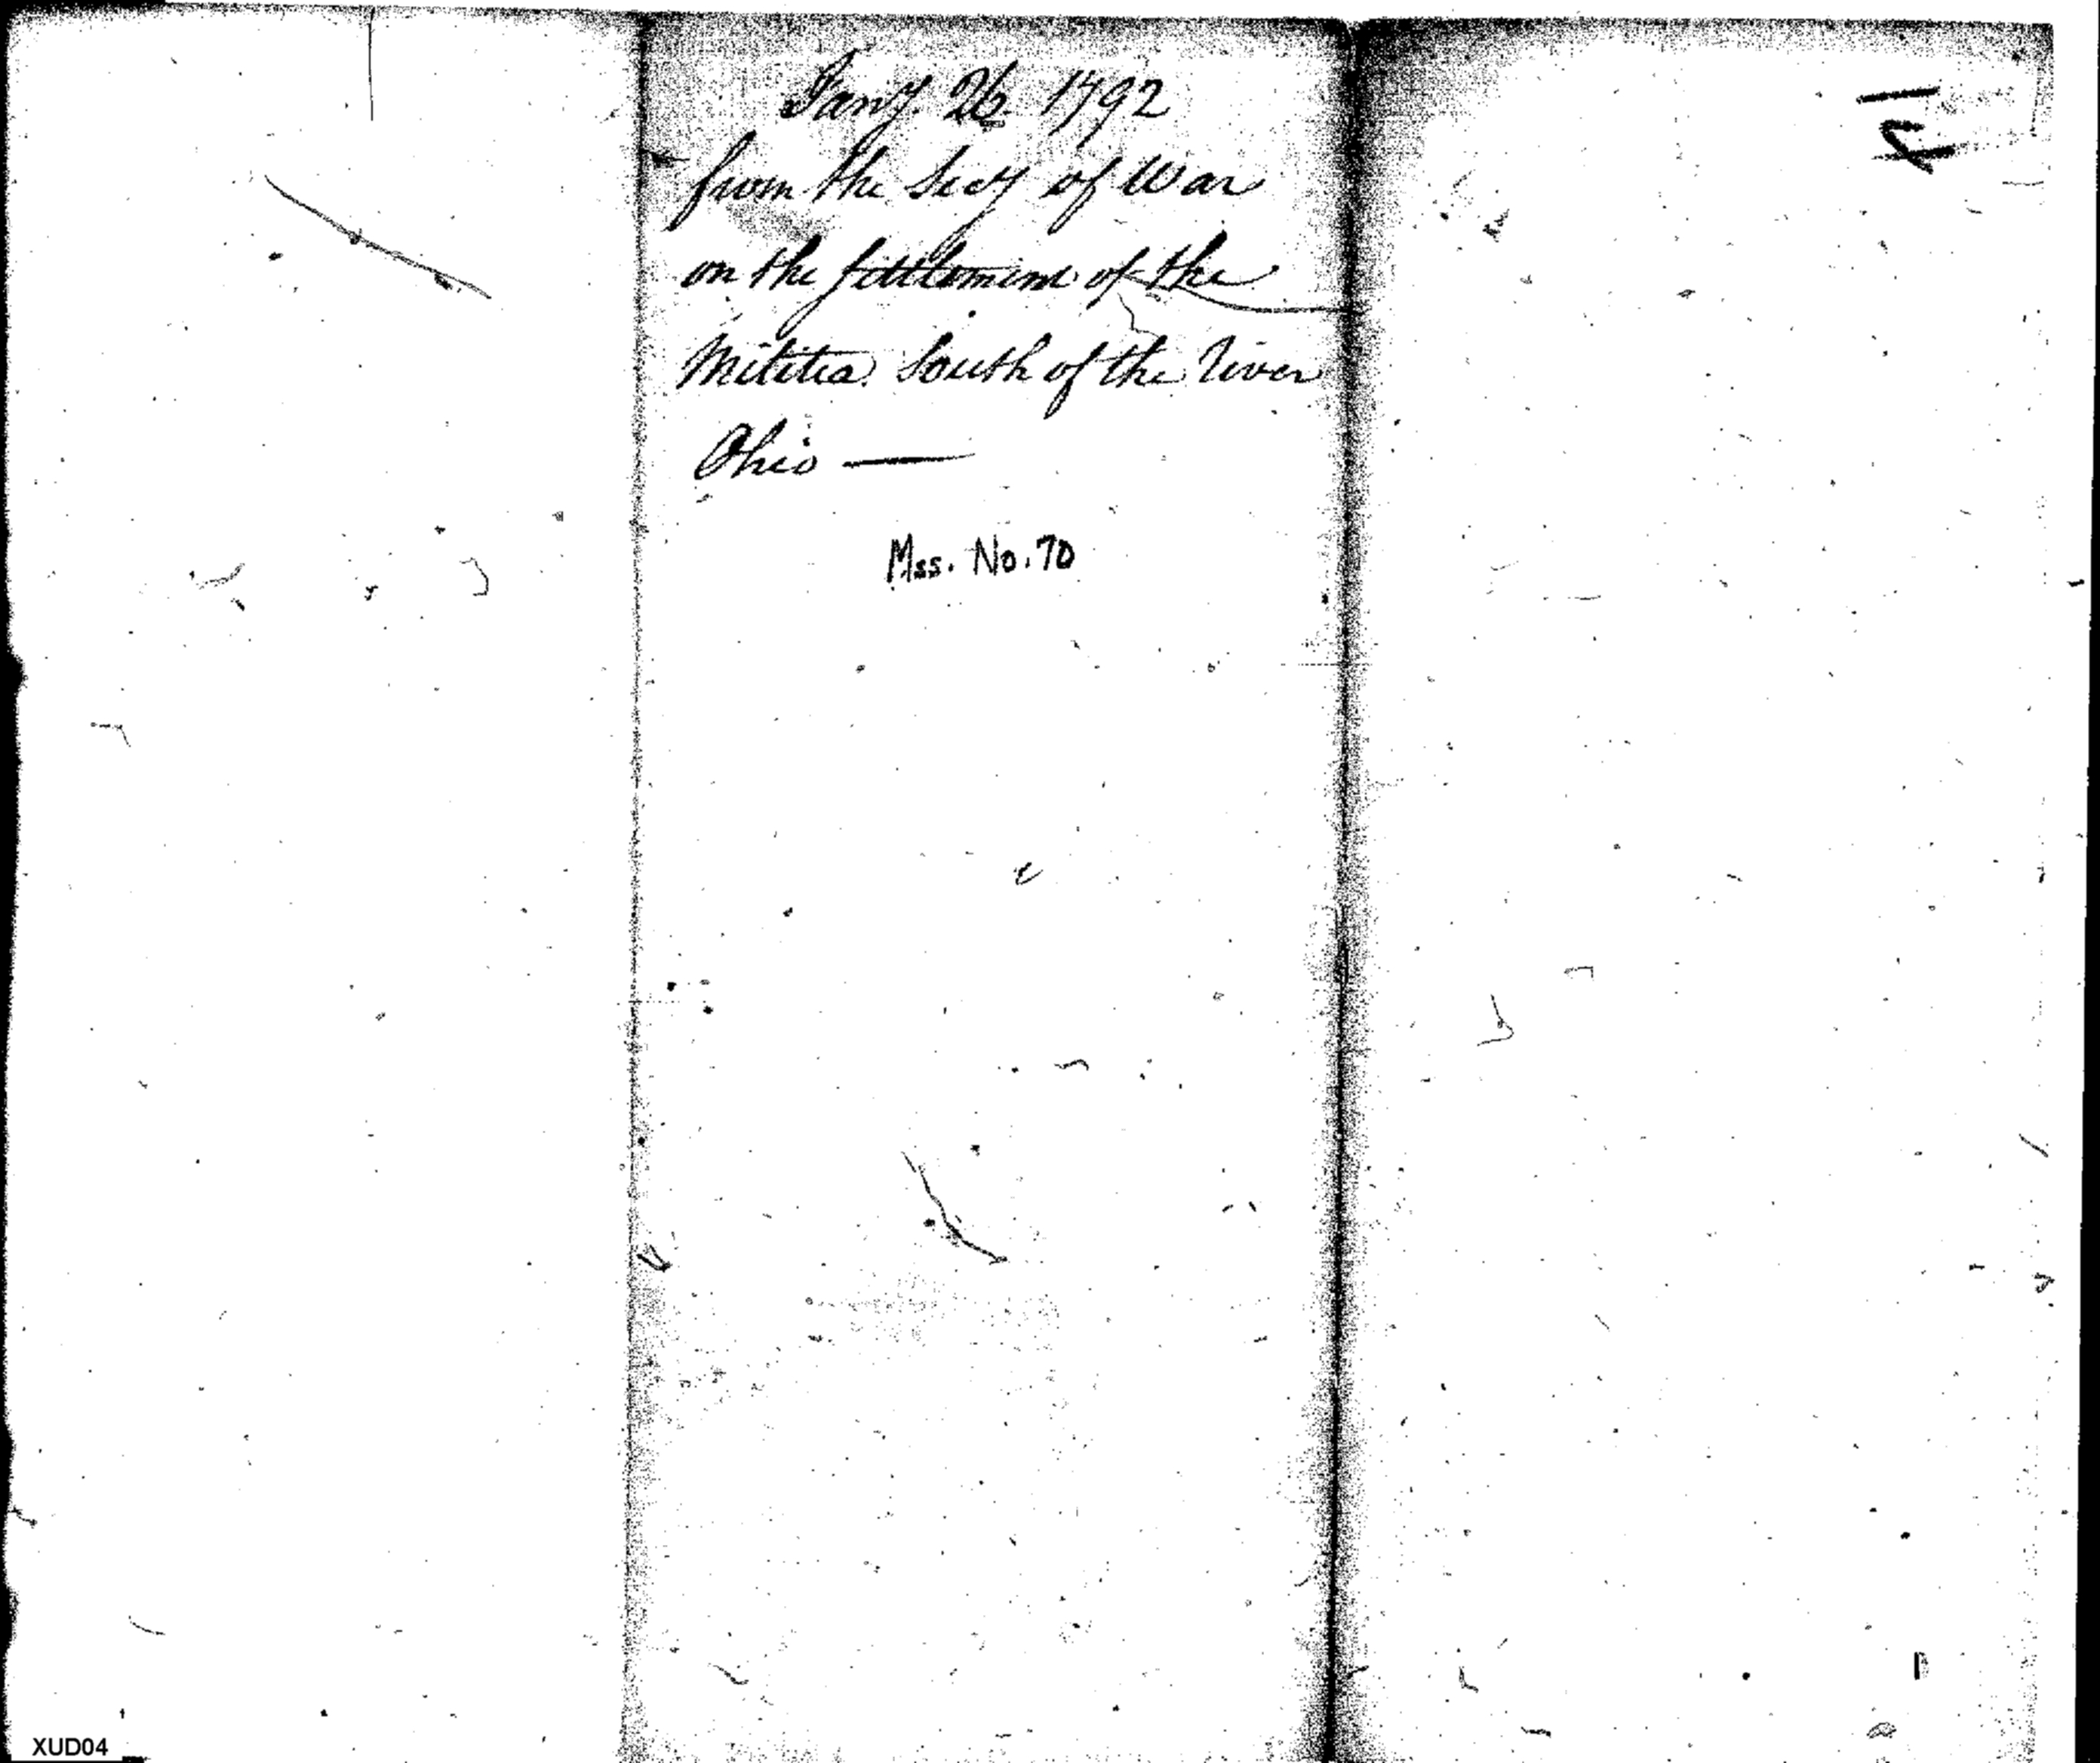 Jany. 26. 1792
from the Secy of War
on the settlement of the
Militia South of the river
Ohio —
Mss. No. 70
XUD04